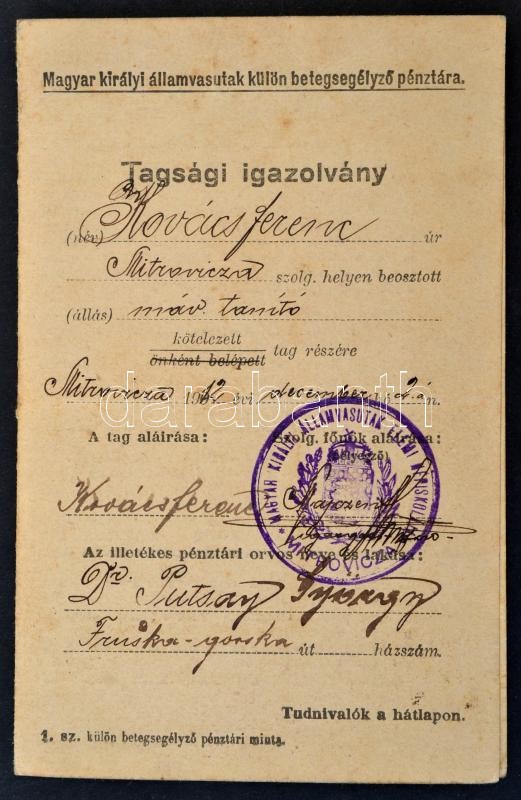 Magyar királyi államvasutak külön betegsegélyző pénztára.
Tagsági igazolvány
(név) Kovács ferenc úr
Mitrovicza szolg. helyen beosztott
(állás) máv. tanító
kötelezett
önként belépett tag részére
Mitrovicza 1912 évi december hó 2.án.
darabanth
A tag aláirása: Szolg. főnök aláirása:
(bélyegző)
MAGYAR KIRÁLYI ÁLLAMVASUTAK ELEMI
MITROVICZA
Kovács ferenc
Az illetékes pénztári orvos neve és lakása:
Dr. Putsay György
Fruska-gorska út házszám.
Tudnivalók a hátlapon.
1. sz. külön betegsegélyző pénztári minta.